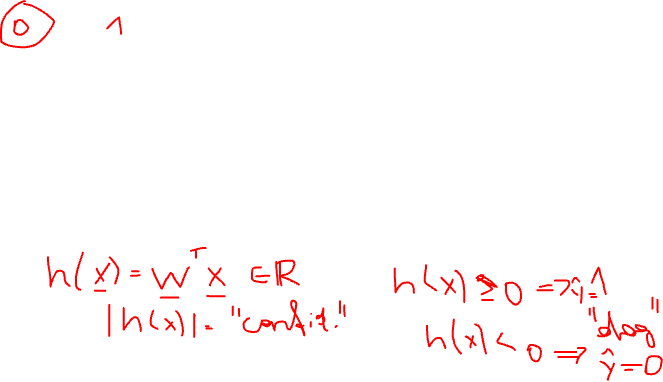 0 1
h(x) = wᵀx ∈ ℝ
|h(x)| = "confid."
h(x) ≥ 0 => ŷ=1
"dog"
h(x) < 0 => ŷ=0